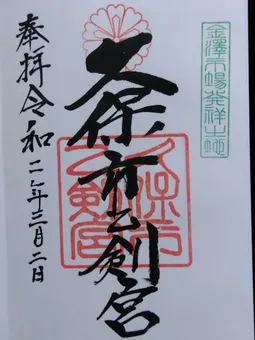 金澤市場発祥之地
久保市乙剣宮
久保市乙剣宮
奉拝令和二年三月二日